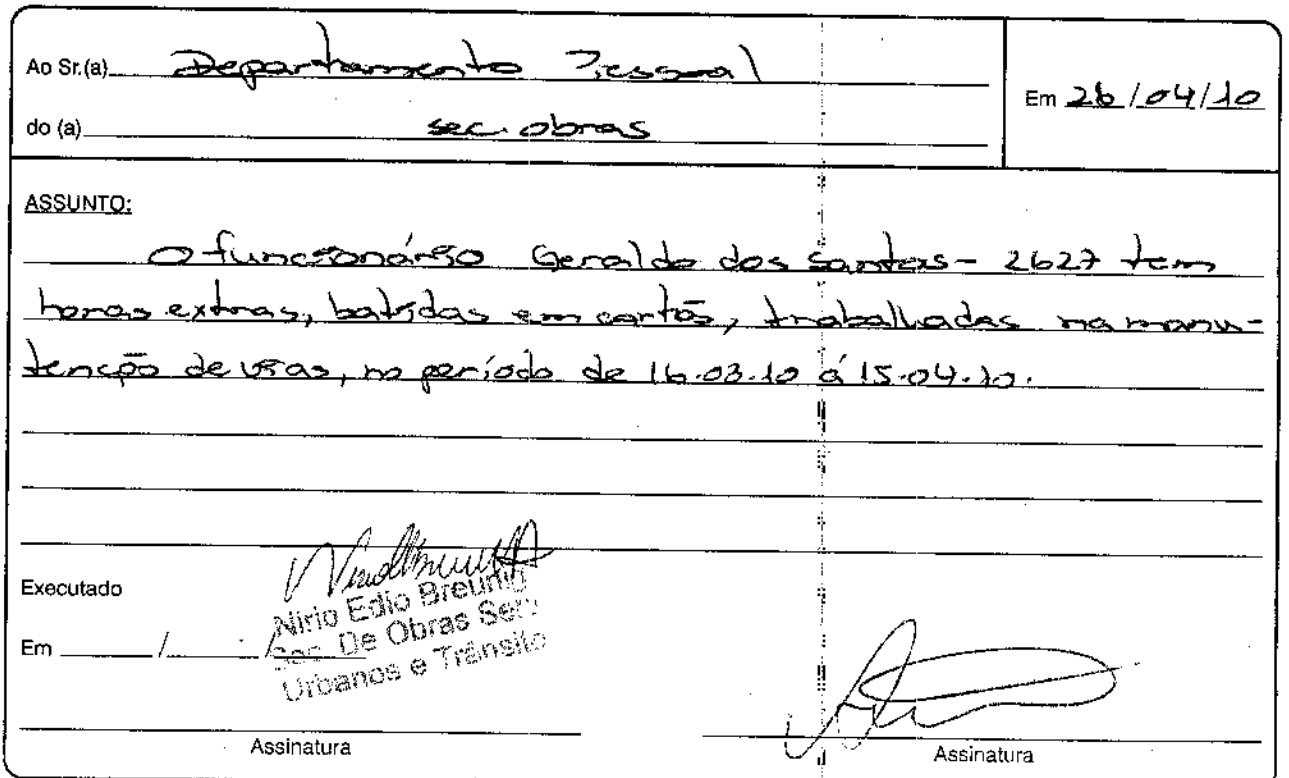 Ao Sr.(a) Departamento Pessoal
Em 26/04/10
do (a) sec. obras
ASSUNTO:
O funcionário Geraldo dos Santos - 2627 tem
horas extras, batidas em cartão, trabalhadas na manu-
tenção de vias, no período de 16.03.10 á 15.04.10.
Executado
Nirio Edio Breunig
Em / / Sec. De Obras Serv
Urbanos e Trânsito
Assinatura Assinatura